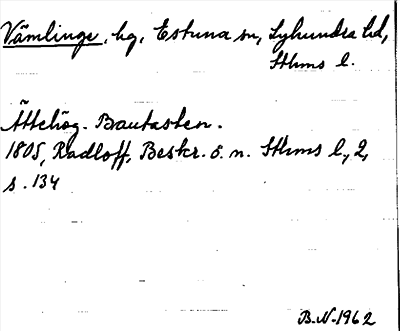 Vämlinge, hg, Estuna sn, Lyhundra hd,
Sthms l.
Ättehög. Bautasten.
1805, Radloff, Beskr. ö. n. Sthms l, 2,
s. 134
B.N. 1962